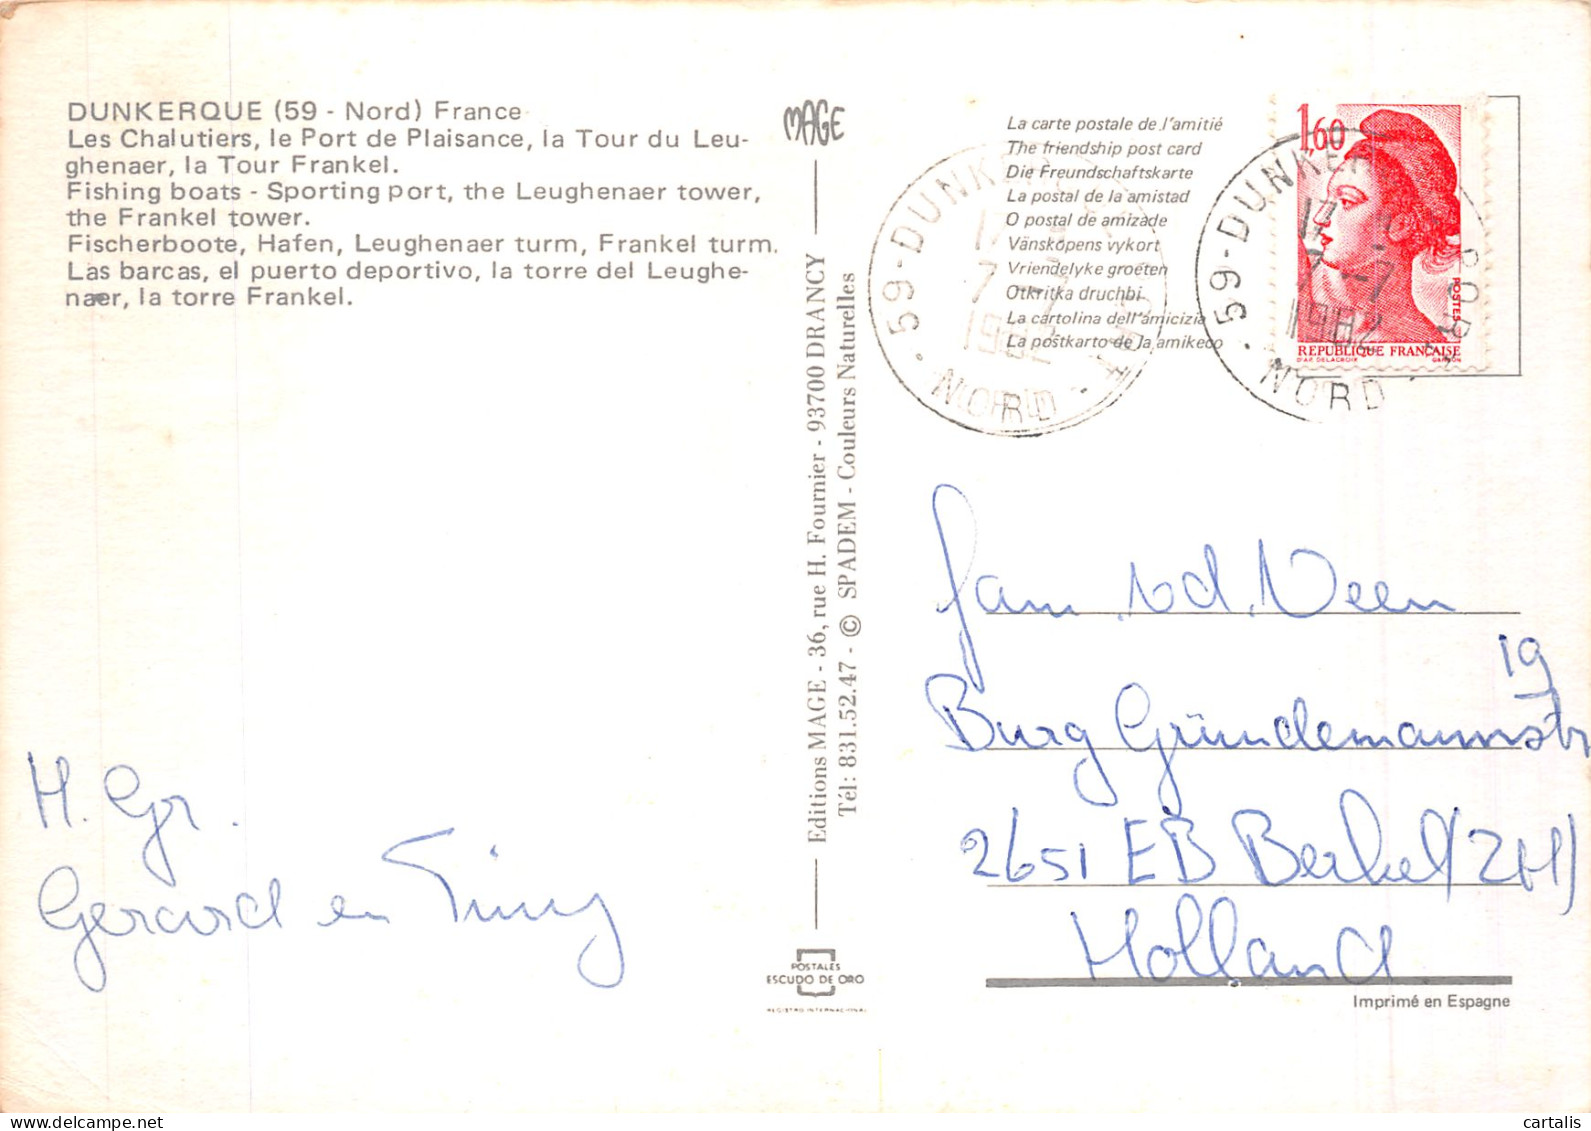 DUNKERQUE (59 - Nord) France
Les Chalutiers, le Port de Plaisance, la Tour du Leu-
ghenaer, la Tour Frankel.
Fishing boats - Sporting port, the Leughenaer tower,
the Frankel tower.
Fischerboote, Hafen, Leughenaer turm, Frankel turm.
Las barcas, el puerto deportivo, la torre del Leughe-
naer, la torre Frankel.
H. Gr.
Gerard en Tiny
MAGE
Editions MAGE - 36, rue H. Fournier - 93700 DRANCY
Tél: 831.52.47 - © SPADEM - Couleurs Naturelles
POSTALES
ESCUDO DE ORO
REGISTRO INTERNACIONAL
La carte postale de l'amitié
The friendship post card
Die Freundschaftskarte
La postal de la amistad
O postal de amizade
Vänskopens vykort
Vriendelyke groeten
Otkritka druchbi
La cartolina dell'amicizia
La postkarto de la amikeco
59-DUNKERQUE
7 -7
1982
NORD
1,60
POSTES
REPUBLIQUE FRANÇAISE
D'AP. DELACROIX GANDON
59-DUNKER PORT
17
7 -7
1982
NORD
fam. vd. Veen
19
Burg Gründemannstr
2651 EB Berkel (ZH)
Holland
Imprimé en Espagne
cartalis